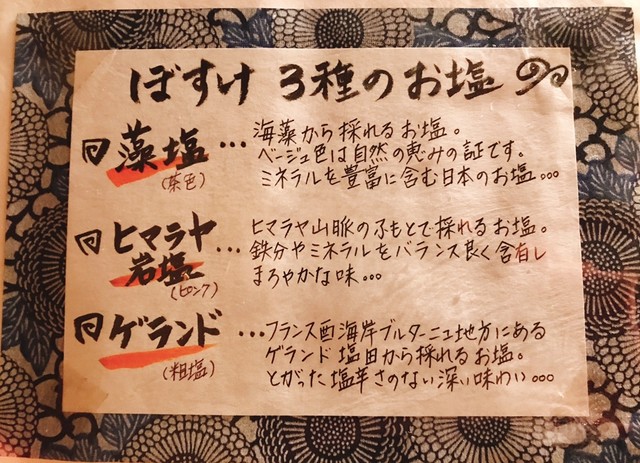 ぼすけ 3種のお塩
藻塩
(茶色)
…海藻から採れるお塩。
ベージュ色は自然の恵みの証です。
ミネラルを豊富に含む日本のお塩…
ヒマラヤ
岩塩
(ピンク)
…ヒマラヤ山脈のふもとで採れるお塩。
鉄分やミネラルをバランス良く含有し
まろやかな味…
ゲランド
(粗塩)
…フランス西海岸ブルターニュ地方にある
ゲランド塩田から採れるお塩。
とがった塩辛さのない深い味わい…